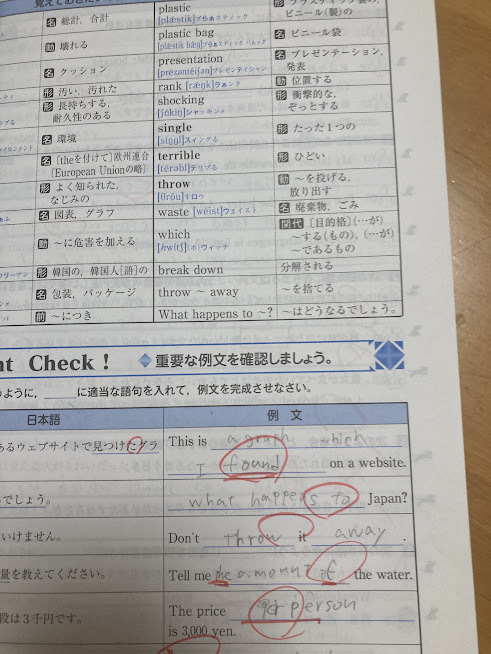 覚えておき
名 総計，合計
動 壊れる
名 クッション
形 汚い，汚れた
形 長持ちする，
耐久性のある
名 環境
名 [theを付けて]欧州連合
[European Unionの略]
形 よく知られた，
なじみの
名 図表，グラフ
動 〜に危害を加える
形 韓国の，韓国人[語]の
名 包装，パッケージ
前 〜につき
plastic
形 プラスティック製の，
ビニール(製)の
plastic bag
名 ビニール袋
presentation
名 プレゼンテーション，
発表
rank [rǽŋk] ラぁンク
動 位置する
shocking
[ʃɑ́kiŋ] シャッキング
形 衝撃的な，
ぞっとする
single
[síŋgl] スィングる
形 たった1つの
terrible
[térəbl] テリブる
形 ひどい
throw
[θróu] すロウ
動 〜を投げる，
放り出す
waste [wéist] ウェイスト
名 廃棄物，ごみ
which
[hwítʃ] (ホ)ウィッチ
関代 [目的格](…が)
〜する(もの)，(…が)
〜であるもの
break down
分解される
throw 〜 away
〜を捨てる
What happens to 〜?
〜はどうなるでしょう。
nt Check !
重要な例文を確認しましょう。
のように，
に適当な語句を入れて，例文を完成させなさい。
日本語
例 文
あるウェブサイトで見つけたグラ
This is a graph which
I found on a website.
でしょう。
what happens to Japan?
いけません。
Don't throw it away .
量を教えてください。
Tell me the amount of the water.
段は3千円です。
The price per person
is 3,000 yen.